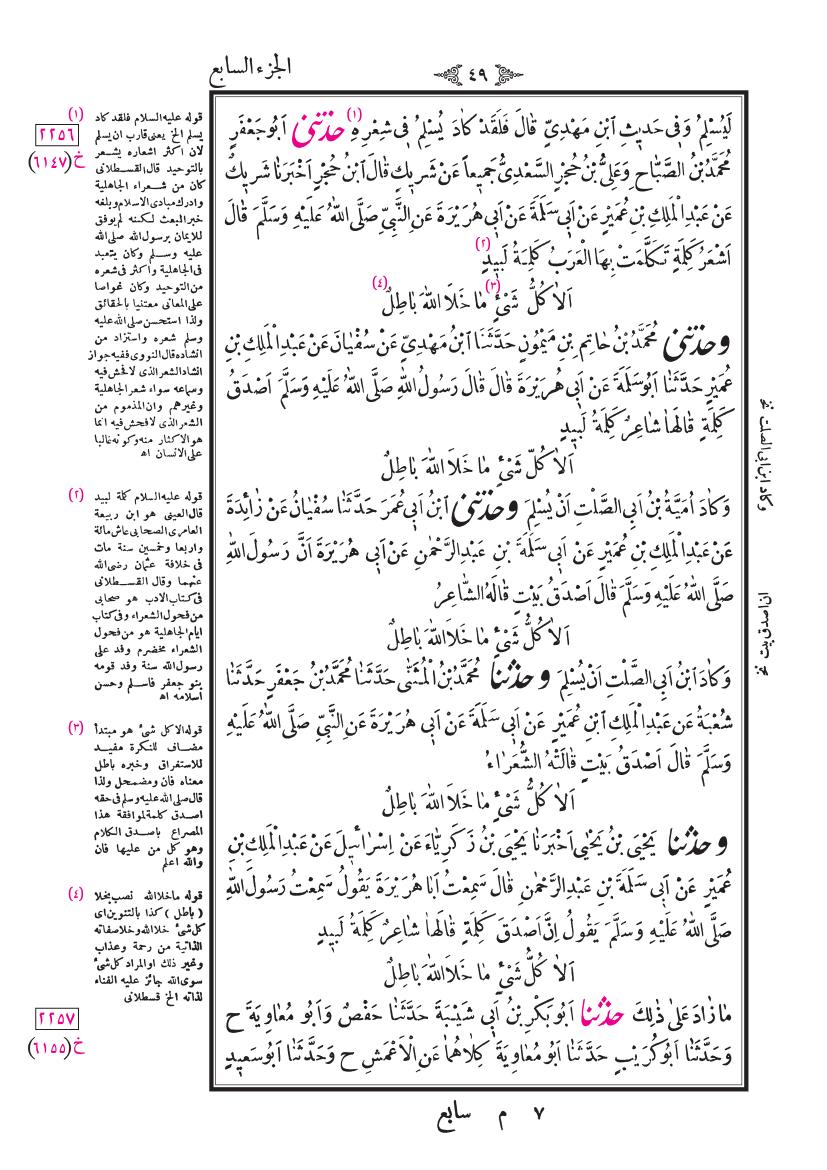 الجزء السابع
٤٩
لَيُسْلِمُ وَفِى حَدِيثِ ابْنِ مَهْدِىٍّ قَالَ فَلَقَدْ كَادَ يُسْلِمُ فِى شِعْرِهِ (١) حَدَّثَنِى اَبُو جَعْفَرٍ
مُحَمَّدُ بْنُ الصَّبَّاحِ وَعَلِىُّ بْنُ حُجْرٍ السَّعْدِىُّ جَمِيعاً عَنْ شَرِيكٍ قَالَ ابْنُ حُجْرٍ اَخْبَرَنَا شَرِيكٌ
عَنْ عَبْدِ الْمَلِكِ بْنِ عُمَيْرٍ عَنْ اَبِى سَلَمَةَ عَنْ اَبِى هُرَيْرَةَ عَنِ النَّبِىِّ صَلَّى اللهُ عَلَيْهِ وَسَلَّمَ قَالَ
اَشْعَرُ كَلِمَةٍ تَكَلَّمَتْ بِهَا الْعَرَبُ كَلِمَةُ لَبِيدٍ (٢)
اَلاَ كُلُّ شَىْءٍ (٣) مَا خَلاَ اللهَ بَاطِلٌ (٤)
وحدثنى مُحَمَّدُ بْنُ حَاتِمِ بْنِ مَيْمُونٍ حَدَّثَنَا ابْنُ مَهْدِىٍّ عَنْ سُفْيَانَ عَنْ عَبْدِ الْمَلِكِ بْنِ
عُمَيْرٍ حَدَّثَنَا اَبُو سَلَمَةَ عَنْ اَبِى هُرَيْرَةَ قَالَ قَالَ رَسُولُ اللهِ صَلَّى اللهُ عَلَيْهِ وَسَلَّمَ اَصْدَقُ
كَلِمَةٍ قَالَهَا شَاعِرٌ كَلِمَةُ لَبِيدٍ
اَلاَ كُلُّ شَىْءٍ مَا خَلاَ اللهَ بَاطِلٌ
وَكَادَ اُمَيَّةُ بْنُ اَبِى الصَّلْتِ اَنْ يُسْلِمَ وحدثنى ابْنُ اَبِى عُمَرَ حَدَّثَنَا سُفْيَانُ عَنْ زَائِدَةَ
عَنْ عَبْدِ الْمَلِكِ بْنِ عُمَيْرٍ عَنْ اَبِى سَلَمَةَ بْنِ عَبْدِ الرَّحْمٰنِ عَنْ اَبِى هُرَيْرَةَ اَنَّ رَسُولَ اللهِ
صَلَّى اللهُ عَلَيْهِ وَسَلَّمَ قَالَ اَصْدَقُ بَيْتٍ قَالَهُ الشَّاعِرُ
اَلاَ كُلُّ شَىْءٍ مَا خَلاَ اللهَ بَاطِلٌ
وَكَادَ ابْنُ اَبِى الصَّلْتِ اَنْ يُسْلِمَ وحدثنا مُحَمَّدُ بْنُ الْمُثَنَّى حَدَّثَنَا مُحَمَّدُ بْنُ جَعْفَرٍ حَدَّثَنَا
شُعْبَةُ عَنْ عَبْدِ الْمَلِكِ ابْنِ عُمَيْرٍ عَنْ اَبِى سَلَمَةَ عَنْ اَبِى هُرَيْرَةَ عَنِ النَّبِىِّ صَلَّى اللهُ عَلَيْهِ
وَسَلَّمَ قَالَ اَصْدَقُ بَيْتٍ قَالَتْهُ الشُّعَرَاءُ
اَلاَ كُلُّ شَىْءٍ مَا خَلاَ اللهَ بَاطِلٌ
وحدثنا يَحْيَى بْنُ يَحْيٰى اَخْبَرَنَا يَحْيَى بْنُ زَكَرِيَّاءَ عَنْ اِسْرَائِيلَ عَنْ عَبْدِ الْمَلِكِ بْنِ
عُمَيْرٍ عَنْ اَبِى سَلَمَةَ بْنِ عَبْدِ الرَّحْمٰنِ قَالَ سَمِعْتُ اَبَا هُرَيْرَةَ يَقُولُ سَمِعْتُ رَسُولَ اللهِ
صَلَّى اللهُ عَلَيْهِ وَسَلَّمَ يَقُولُ اِنَّ اَصْدَقَ كَلِمَةٍ قَالَهَا شَاعِرٌ كَلِمَةُ لَبِيدٍ
اَلاَ كُلُّ شَىْءٍ مَا خَلاَ اللهَ بَاطِلٌ
مَا زَادَ عَلَى ذٰلِكَ حدثنا اَبُو بَكْرِ بْنُ اَبِى شَيْبَةَ حَدَّثَنَا حَفْصٌ وَاَبُو مُعَاوِيَةَ ح
وَحَدَّثَنَا اَبُو كُرَيْبٍ حَدَّثَنَا اَبُو مُعَاوِيَةَ كِلاَهُمَا عَنِ الْاَعْمَشِ ح وَحَدَّثَنَا اَبُو سَعِيدٍ
وكاد ابن ابى الصلت نخ
ان اصدق بيت نخ
(١) قوله عليه السلام فلقد كاد
يسلم الخ يعنى قارب ان يسلم
لان اكثر اشعاره يشعر
بالتوحيد قال القسطلانى
كان من شعراء الجاهلية
وادرك مبادى الاسلام وبلغه
خبر المبعث لكنه لم يوفق
للايمان برسول الله صلى الله
عليه وسلم وكان يتعبد
فى الجاهلية واكثر فى شعره
من التوحيد وكان غواصا
على المعانى معتنيا بالحقائق
ولذا استحسن صلى الله عليه
وسلم شعره واستزاد من
انشاده قال النووى ففيه جواز
انشاد الشعر الذى لا فحش فيه
وسماعه سواء شعر الجاهلية
وغيرهم وان المذموم من
الشعر الذى لا فحش فيه انما
هو الاكثار منه وكونه غالبا
على الانسان اه
٢٢٥٦
خ (٦١٤٧)
(٢) قوله عليه السلام كلمة لبيد
قال العينى هو ابن ربيعة
العامرى الصحابى عاش مائة
واربعا وخمسين سنة مات
فى خلافة عثمان رضى الله
عنهما وقال القسطلانى
فى كتاب الادب هو صحابى
من فحول الشعراء وفى كتاب
ايام الجاهلية هو من فحول
الشعراء مخضرم وفد على
رسول الله سنة وفد قومه
بنو جعفر فاسلم وحسن
اسلامه اه
(٣) قوله الا كل شئ هو مبتدأ
مضاف للنكرة مفيد
للاستغراق وخبره باطل
معناه فان ومضمحل ولذا
قال صلى الله عليه وسلم فى حقه
اصدق كلمة لموافقة هذا
المصراع باصدق الكلام
وهو كل من عليها فان
والله اعلم
(٤) قوله ما خلا الله نصب بخلا
(باطل) كذا بالتنوين اى
كل شئ خلا الله وخلا صفاته
الذاتية من رحمة وعذاب
وغير ذلك او المراد كل شئ
سوى الله جائز عليه الفناء
لذاته الخ قسطلانى
٢٢٥٧
خ (٦١٥٥)
٧ م سابع